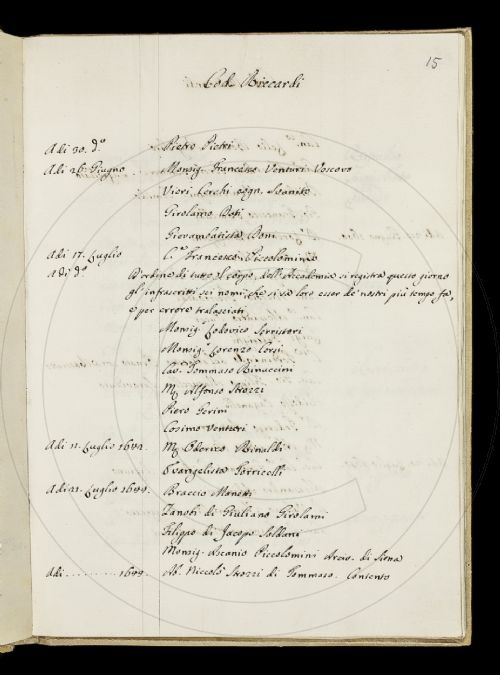 15
Cod. Riccardi
Adi 30. d.º Pietro Pietri
Adi 26. Giugno Monsig. Francesco Venturi Vescovo
Vieri Cerchi
Girolamo
Giovambatista Doni
Adi 17. Luglio C.º Francesco Piccolomini
Adi d.º D'ordine di tutto il Corpo dell'Accademia si registra questo giorno
gl'infrascritti sei nomi, che si sa loro esser de' nostri più tempo fa,
e per errore tralasciati
Monsig. Lodovico Serristori
Monsig. Lorenzo Corsi
Cav. Tommaso Rinuccini
Alfonso Strozzi
Piero Gerini
Cosimo Venturi
Adi 11. Luglio 1642. Oderico Rinaldi
Evangelista Torricelli
Adi 21. Luglio 1649. Braccio Manetti
Zanobi di Giuliano Girolami
Filippo di Jacopo Soldani
Monsig. Ascanio Piccolomini Arciv. di Siena
Adi .......... 1649. Ab. Niccolò Strozzi di Tommaso.